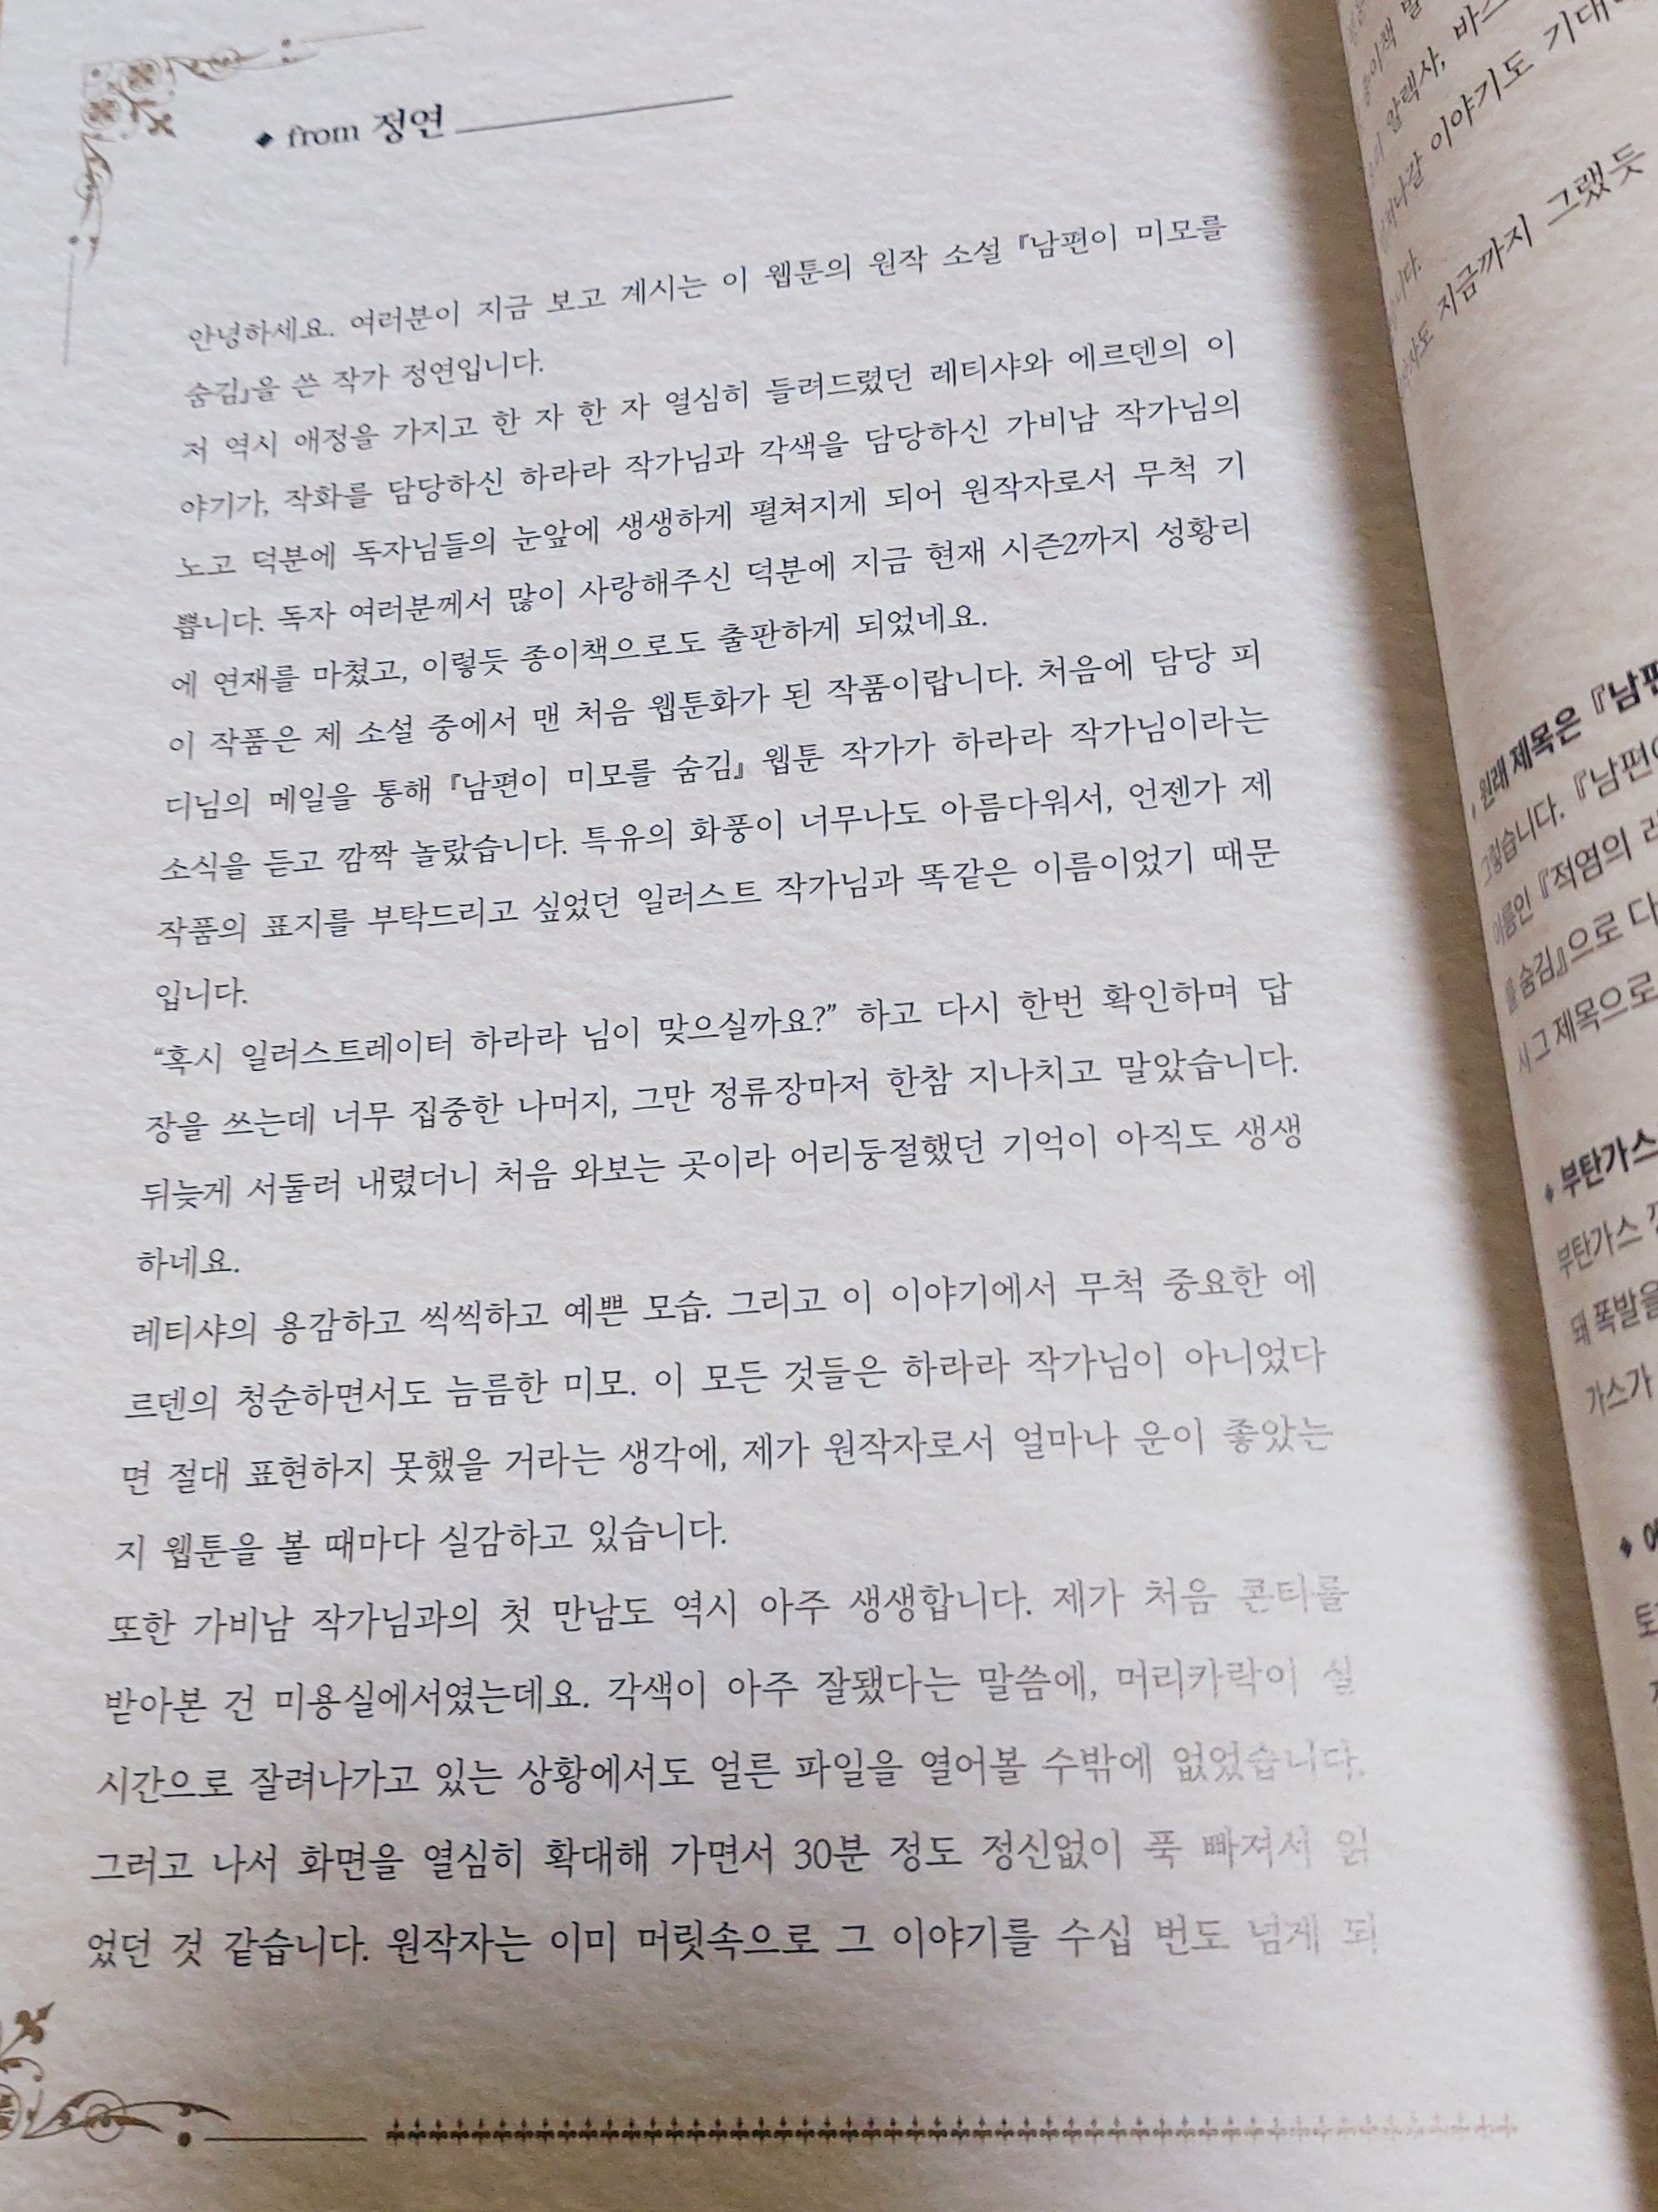 from 정연
안녕하세요. 여러분이 지금 보고 계시는 이 웹툰의 원작 소설 『남편이 미모를
숨김』을 쓴 작가 정연입니다.
저 역시 애정을 가지고 한 자 한 자 열심히 들려드렸던 레티샤와 에르덴의 이
야기가, 작화를 담당하신 하라라 작가님과 각색을 담당하신 가비남 작가님의
노고 덕분에 독자님들의 눈앞에 생생하게 펼쳐지게 되어 원작자로서 무척 기
쁩니다. 독자 여러분께서 많이 사랑해주신 덕분에 지금 현재 시즌2까지 성황리
에 연재를 마쳤고, 이렇듯 종이책으로도 출판하게 되었네요.
이 작품은 제 소설 중에서 맨 처음 웹툰화가 된 작품이랍니다. 처음에 담당 피
디님의 메일을 통해 『남편이 미모를 숨김』 웹툰 작가가 하라라 작가님이라는
소식을 듣고 깜짝 놀랐습니다. 특유의 화풍이 너무나도 아름다워서, 언젠가 제
작품의 표지를 부탁드리고 싶었던 일러스트 작가님과 똑같은 이름이었기 때문
입니다.
“혹시 일러스트레이터 하라라 님이 맞으실까요?” 하고 다시 한번 확인하며 답
장을 쓰는데 너무 집중한 나머지, 그만 정류장마저 한참 지나치고 말았습니다.
뒤늦게 서둘러 내렸더니 처음 와보는 곳이라 어리둥절했던 기억이 아직도 생생
하네요.
레티샤의 용감하고 씩씩하고 예쁜 모습. 그리고 이 이야기에서 무척 중요한 에
르덴의 청순하면서도 늠름한 미모. 이 모든 것들은 하라라 작가님이 아니었다
면 절대 표현하지 못했을 거라는 생각에, 제가 원작자로서 얼마나 운이 좋았는
지 웹툰을 볼 때마다 실감하고 있습니다.
또한 가비남 작가님과의 첫 만남도 역시 아주 생생합니다. 제가 처음 콘티를
받아본 건 미용실에서였는데요. 각색이 아주 잘됐다는 말씀에, 머리카락이 실
시간으로 잘려나가고 있는 상황에서도 얼른 파일을 열어볼 수밖에 없었습니다.
그러고 나서 화면을 열심히 확대해 가면서 30분 정도 정신없이 푹 빠져서 읽
었던 것 같습니다. 원작자는 이미 머릿속으로 그 이야기를 수십 번도 넘게 되
이야기도
지금까지 그랬듯
원래 제목은 『남편
그렇습니다. 『남편이
이름인 『적염의
을 숨김』으로 다
시 그 제목으로
부탄가스
부탄가스
돼 폭발을
가스가